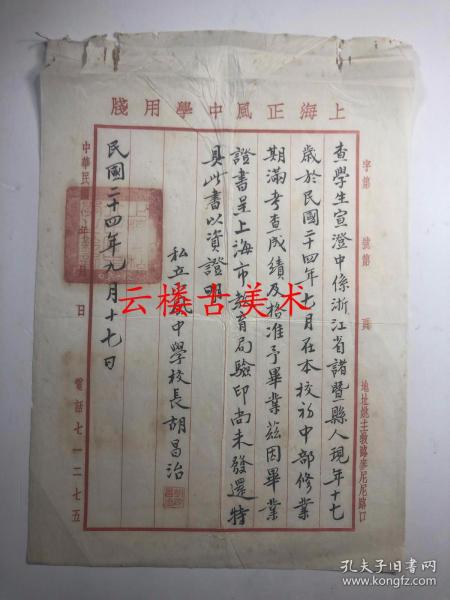 上海正風中學用牋
字第 號第 頁
地址姚主教路麥尼尼路口
查學生宣澄中係浙江省諸暨縣人現年十七
歲於民國二十四年七月在本校初中部修業
期滿考查成績及格准予畢業茲因畢業
證書呈上海市教育局驗印尚未發還特
具此書以資證明
私立正風中學校長胡昌治
民國二十四年九月十七日
中華民
日
電話七一二七五
云楼古美术
孔夫子旧书网
www.kongfz.com